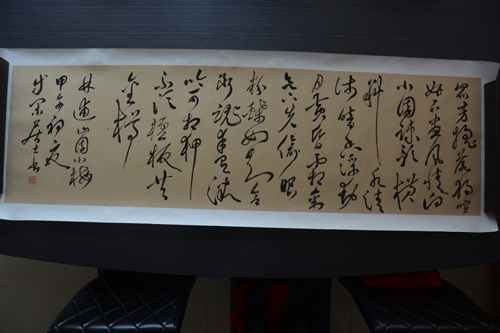 众芳摇落独喧
妍占尽风情向
小园疏影横
斜水清
浅暗香浮动
月黄昏霜禽
欲下先偷眼
粉蝶如知合
断魂幸有微
吟可相狎
不须檀板共
金樽
林逋山园小梅
甲午初夏
居士书